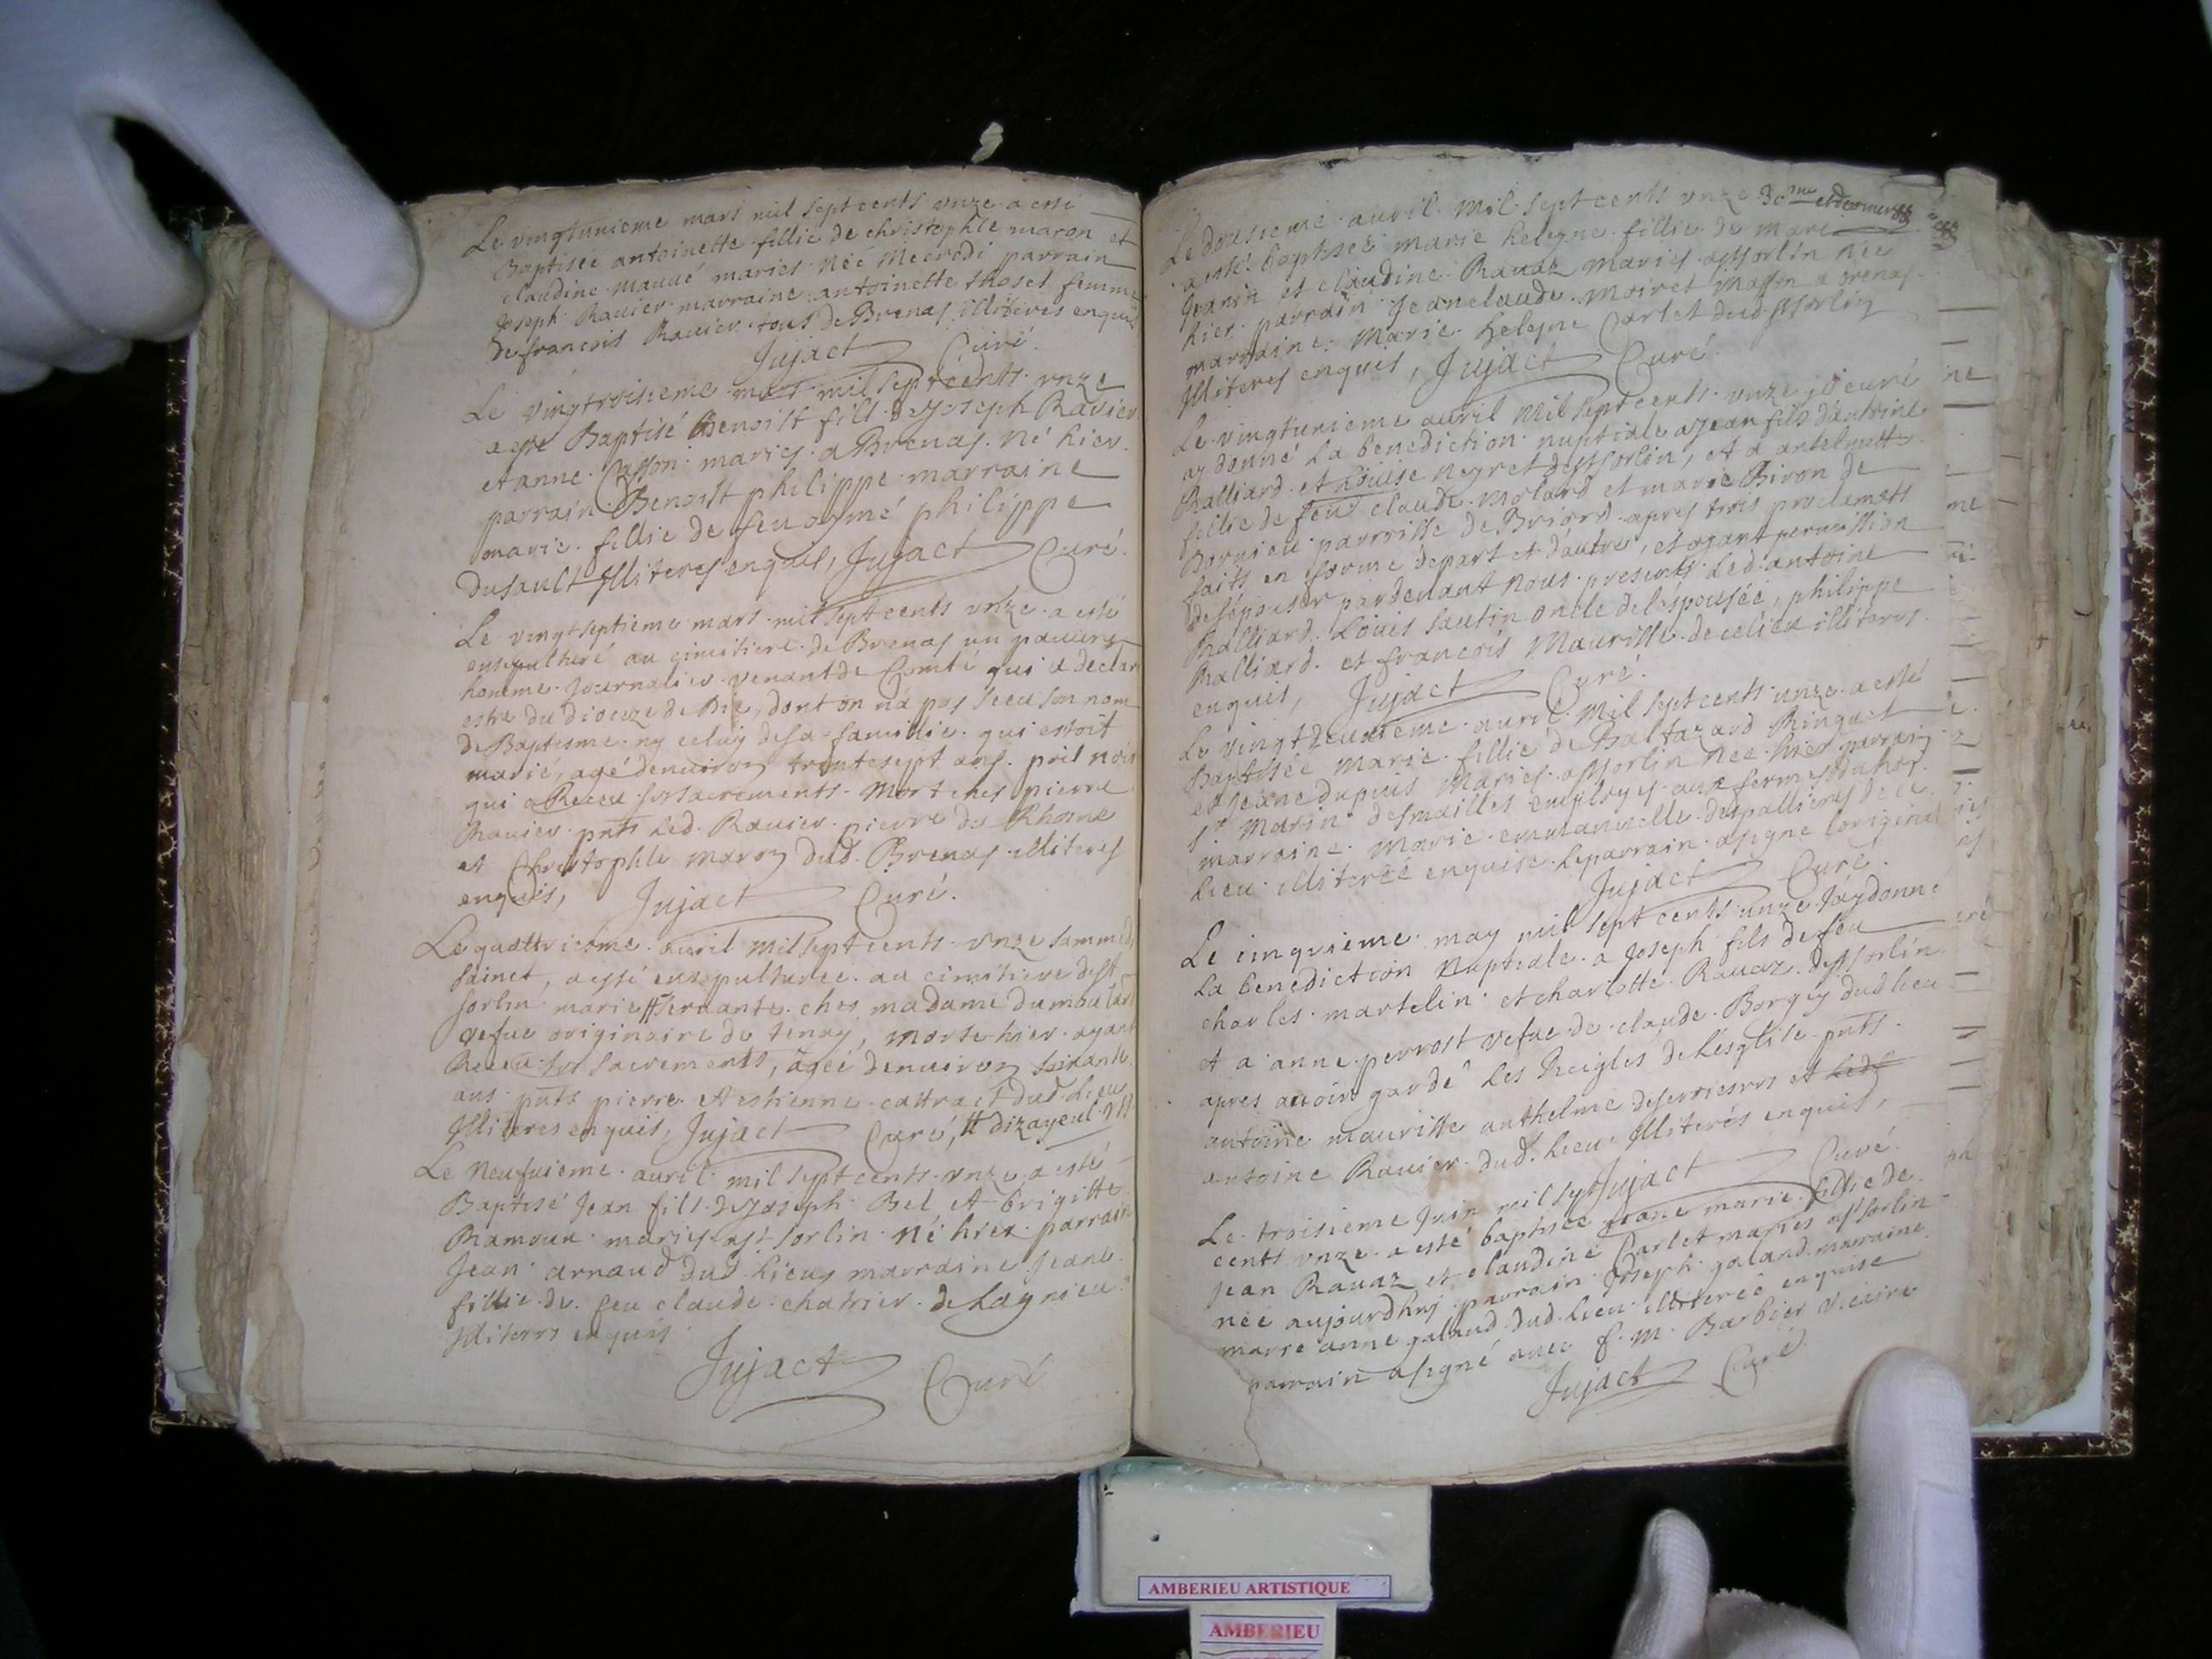 Le vingtunieme mars mil sept cents unze a esté
Baptisée antoinette fillie de christophle maron et
claudine mariés née Mecredi parrain
Joseph Ravier marraine antoinette thoset femme
de francois Ravier tous de Brenas illiteres enquis
Jujact Curé.
Le vingtroisieme mars mil sept cents unze
a esté Baptisé Benoist fils de Joseph Ravier
et anne Casson mariés a Brenas né hier
parrain Benoist philippe marraine
marie fillie de feu aymé philippe
dusault Illiteres enquis, Jujact Curé.
Le vingt septieme mars mil sept cents unze a esté
ensepulturé au cimitiere de Brenas un pauvre
homme Journalier venant de Comté qui a declaré
estre du dioceze de, dont on n'a pas sceu son nom
de Baptesme ny celuy de sa famillie qui estoit
marié, agé denviron trentesept ans poil noir
qui a Receu ses sacrements mort ches pierre
Ravier pnts led. Ravier pierre du Rhosne
et Christophle maron dud. Brenas illiteres
enquis, Jujact Curé.
Le quattrieme avril mil sept cents unze sammedi
sainct, a esté ensepulturée au cimitiere de st
sorlin marie # servante ches madame dumoulard
vefue originaire de tenay, morte hier ayant
Receu ses sacrements, agée denviron soixante
ans pnts pierre et estienne cattract dud. Lieu
Illiteres enquis, Jujact Curé, #
Le neufuieme avril mil sept cents unze a esté
Baptisé Jean fils de Joseph Bel et brigitte
Ramoux mariés a st sorlin né hier parrain
Jean arnaud dud. Lieu marraine Jeane
fillie de feu claude chatrier de Lagnieu
Illiteres enquis
Jujact Curé
Le dousieme avril mil sept cents unze
a esté baptisée marie heleyne fillie de marc
Granin et claudine Ravaz mariés a st sorlin née
hier parrain Jeanclaude moiret masson a Brenas
marraine Marie heleyne Carlet dud. st sorlin
Illiteres enquis, Jujact Curé.
Le vingtunieme avril mil sept cents unze je curé
ay donné la benediction nuptiale a Jean fils dantoine
Ralliard et Louise negret de st sorlin, et a antelmette
fillie de feu claude molard et marie Biron de
parroisse de Briord apres trois proclamats
faits en forme depart et d'autre, et ayant permission
desepouser pardevant nous presents led. antoine
Ralliard Louis sautin oncle de lespousée, philippe
Ralliard et francois Maurisse de ce lieu illiteres
enquis, Jujact Curé.
Le vingt deuxieme avril mil sept cents unze a esté
Baptisée marie fillie de Baltazard Ringuet
et Jeane dupuis mariés a st sorlin née hier parrain
sr marin desmailles employes aux fermes
marraine marie emmanuelle despallieres de ce
Lieu illiterée enquise le parrain a signé loriginal
Jujact Curé.
Le cinquieme may mil sept cents unze Jay donné
La benediction nuptiale a Joseph fils de feu
charles martelin et charlotte Ravaz de st sorlin
et a anne perrost vefue de claude Borgey dud. lieu
apres avoir gardé les Reigles de lesglise pnts
antoine maurisse anthelme et
antoine Ravier dud. Lieu Illiterés enquis,
Jujact Curé.
Le troisieme Juin mil sept
cents unze a esté baptisée Jeane marie fillie de
Jean Ravaz et claudine Carlet mariés a st sorlin
née aujourdhuy parrain Joseph galand marraine
marie anne galand dud. Lieu illiterée enquise
parrain a signé avec f. m. Barbier vicaire
Jujact Curé
AMBERIEU ARTISTIQUE
AMBERIEU